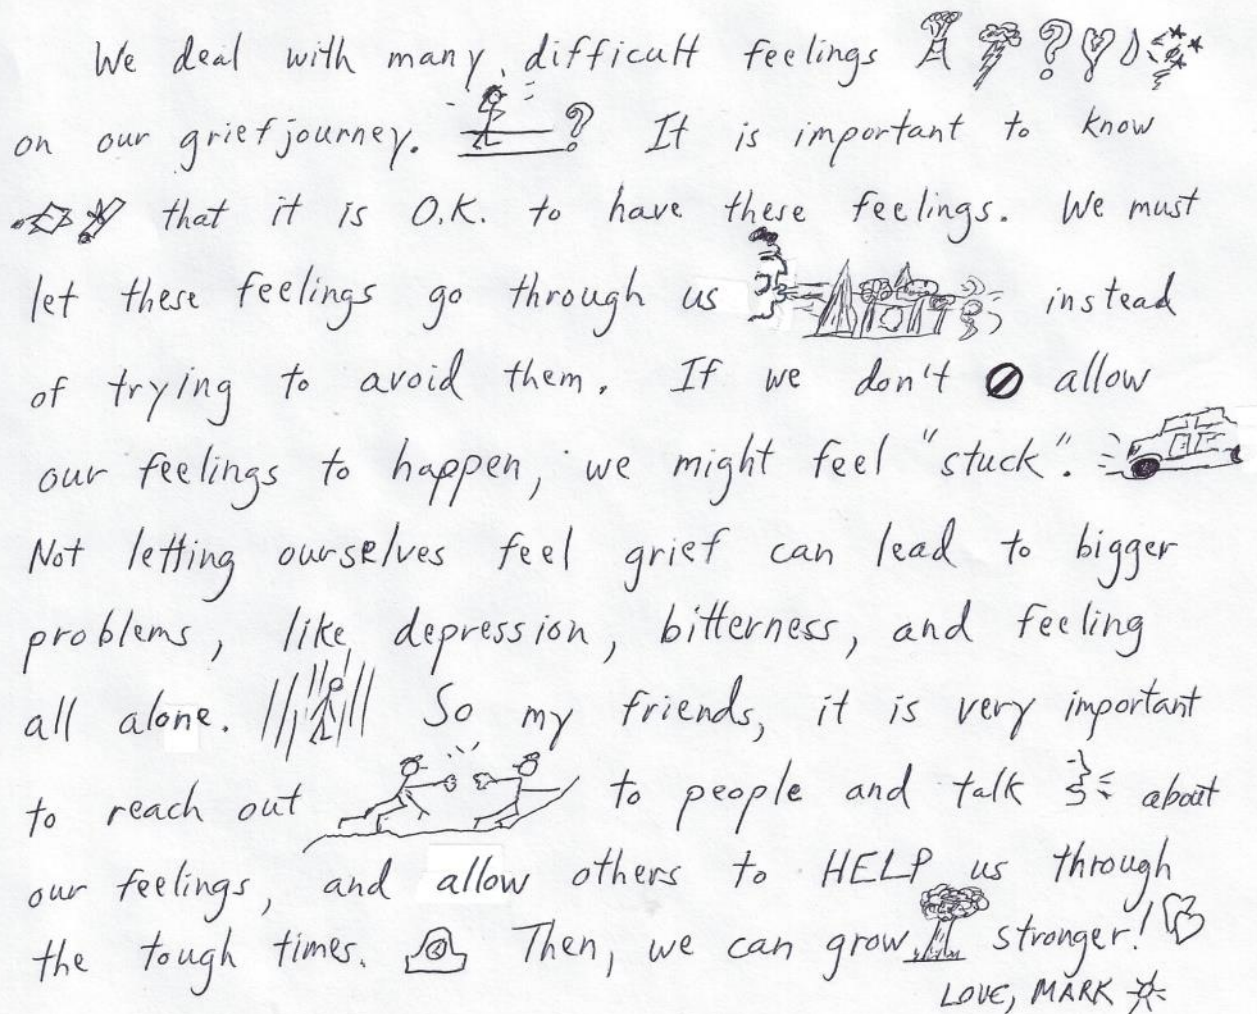 We deal with many difficult feelings
on our grief journey. ? It is important to know
that it is O.K. to have these feelings. We must
let these feelings go through us instead
of trying to avoid them. If we don't allow
our feelings to happen, we might feel "stuck".
Not letting ourselves feel grief can lead to bigger
problems, like depression, bitterness, and feeling
all alone. So my friends, it is very important
to reach out to people and talk about
our feelings, and allow others to HELP us through
the tough times. Then, we can grow stronger!
LOVE, MARK